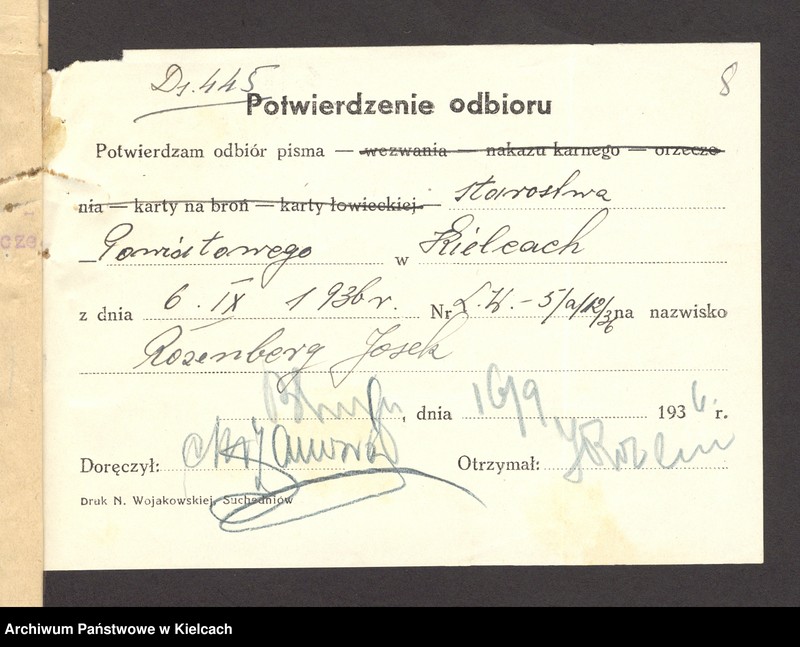 Dz. 445
8
Potwierdzenie odbioru
Potwierdzam odbiór pisma — wezwania — nakazu karnego — orzecze-
nia — karty na broń — karty łowieckiej — starostwa
Powiatowego w Kielcach
z dnia 6. IX 1936 r. Nr Ł.W.-5/a/12/36 na nazwisko
Rozenberg Josek
, dnia 16/9 1936. r.
Doręczył: Otrzymał: JRozen
Druk N. Wojakowskiej, Suchedniów
cze
Archiwum Państwowe w Kielcach